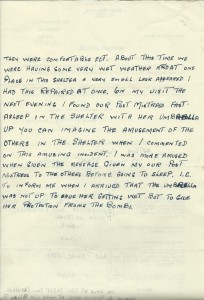 THEY WERE COMFORTABLE ECT. ABOUT THIS TIME WE
WERE HAVING SOME VERY WET WEATHER AND AT ONE
PLACE IN THIS SHELTER A VERY SMALL LEAK APPEARED I
HAD THIS REPAIRED AT ONCE. ON MY VISIT THE
NEXT EVENING I FOUND OUR POST MISTRESS FAST
ASLEEP IN THE SHELTER WITH HER UMBRELLA
UP YOU CAN IMAGING THE AMUSEMENT OF THE
OTHERS IN THE SHELTER WHEN I COMMENTED
ON THIS AMUSING INCIDENT. I WAS MORE AMUSED
WHEN GIVEN THE MESSAGE GIVEN MY OUR POST
MISTRESS TO THE OTHERS BEFORE GOING TO SLEEP. I.E.
TO INFORM ME WHEN I ARRIVED THAT THE UMBRELLA
WAS NOT UP TO SAVE HER GETTING WET BUT TO GIVE
HER PROTECTION FROM THE BOMBS.